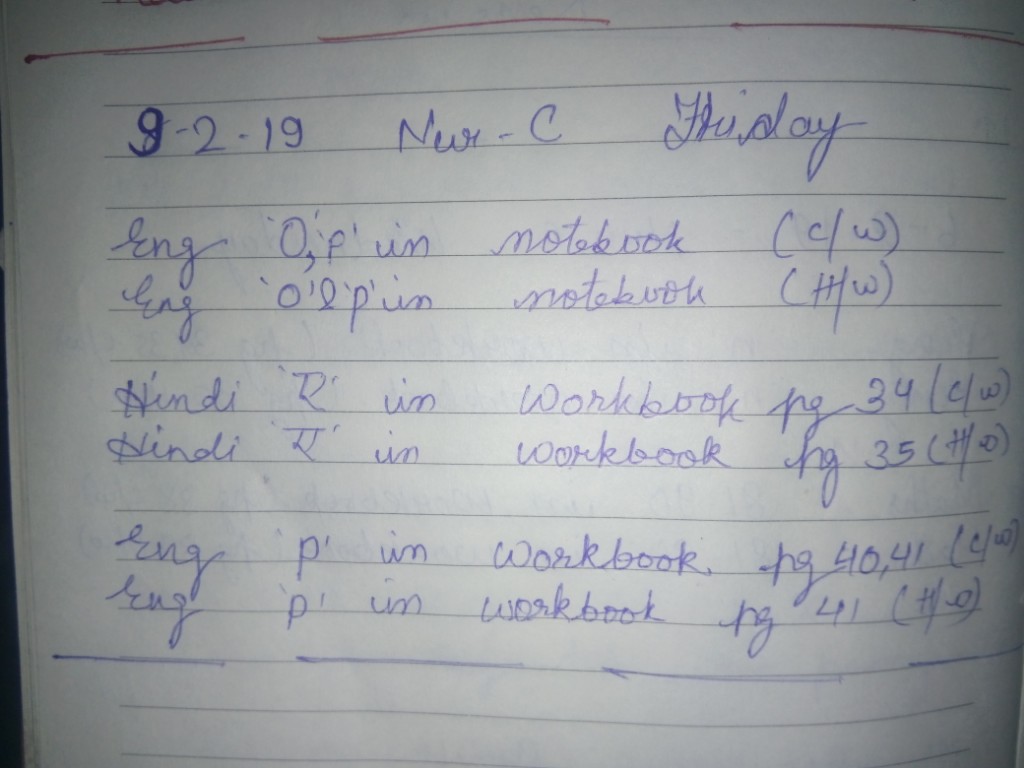 8-2-19 Nur-C Friday
Eng 'O','P' in notebook (C/W)
Eng 'O' & 'P' in notebook (H/W)
Hindi 'ए' in workbook pg 34 (C/W)
Hindi 'ए' in workbook pg 35 (H/W)
Eng P' in workbook. pg 40,41 (C/W)
Eng 'P' in workbook pg 41 (H/W)